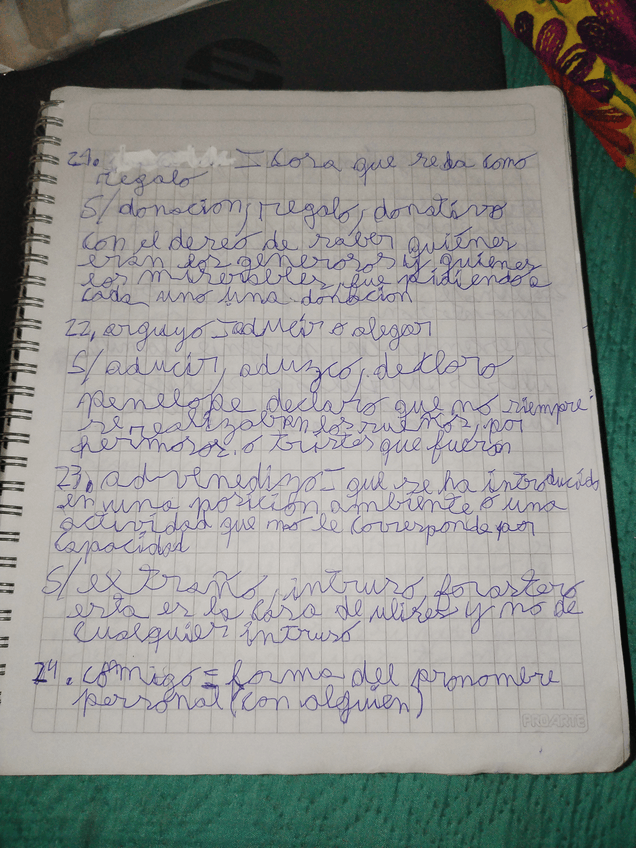 21. = Cosa que se da como
regalo
S/ donacion, regalo, donativo
con el deseo de saber quienes
eran los generosos y quienes
los miserables, fue pidiendo a
cada uno una donacion
22. arguyo = aducir o alegar
S/ aducir, aduzco, declaro
penelope declaro que no siempre
se realizaban los sueños, por
hermosos o tristes que fueran
23. advenedizo = que se ha introducido
en una posicion ambiente o una
actividad que no le corresponde por
capacidad
S/ extraño, intruso, forastero
esta es la casa de ulises y no de
cualquier intruso
24. comigo = forma del pronombre
personal (con alguien)
PROARTE